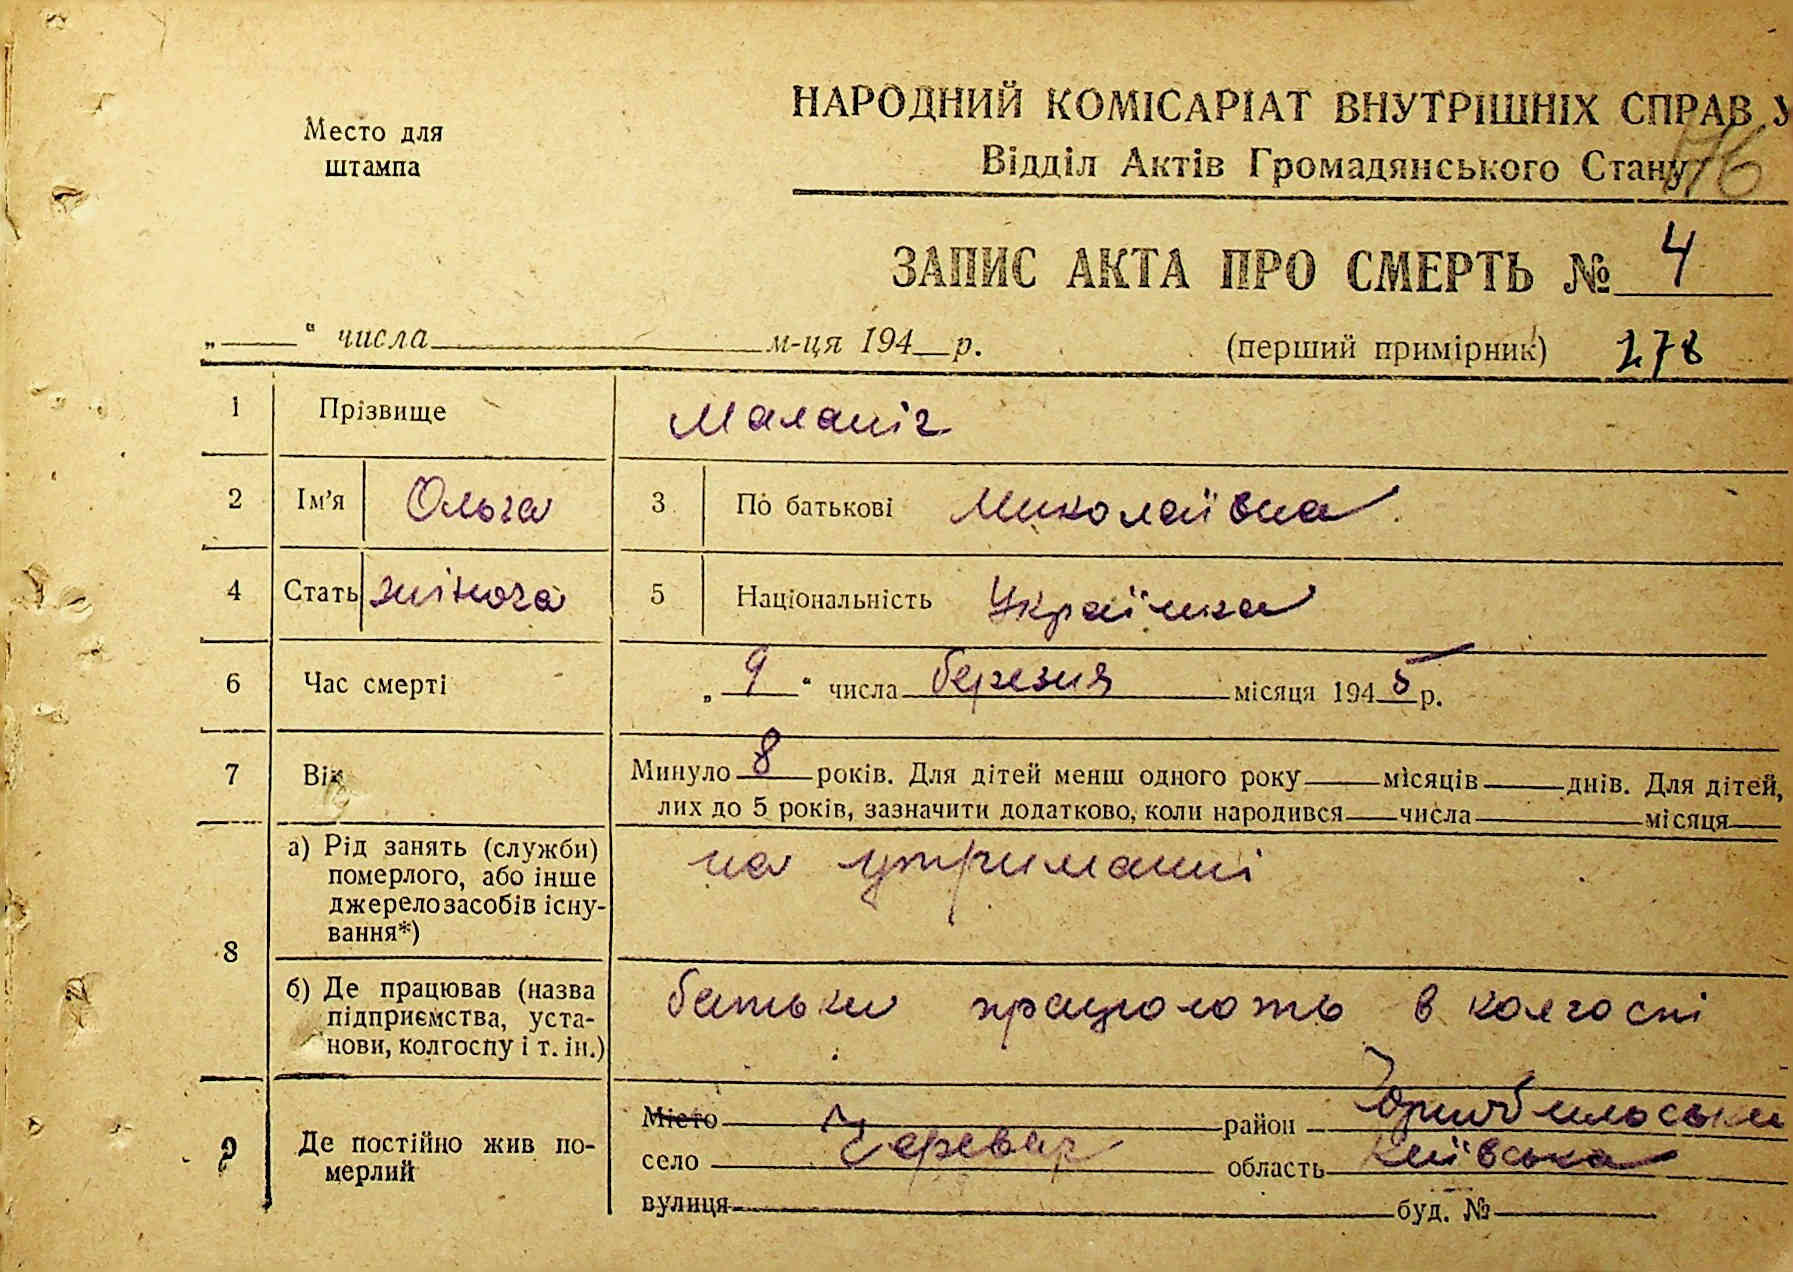 Место для
штампа
НАРОДНИЙ КОМІСАРІАТ ВНУТРІШНІХ СПРАВ У
Відділ Актів Громадянського Стану
ЗАПИС АКТА ПРО СМЕРТЬ № 4
„ “ числа м-ця 194 р. (перший примірник) 278
1 Прізвище
2 Ім’я Ольга 3 По батькові Миколаївна
4 Стать жіноча 5 Національність Українка
6 Час смерті „ 9 “ числа березня місяця 1945 р.
7 Вік Минуло 8 років. Для дітей менш одного року місяців днів. Для дітей,
лих до 5 років, зазначити додатково, коли народився числа місяця
8 а) Рід занять (служби)
померлого, або інше
джерело засобів існу-
вання*)
на утриманні
б) Де працював (назва
підприємства, уста-
нови, колгоспу і т. ін.)
батьки працюють в колгоспі
9 Де постійно жив по-
мерлий
Місто район
село Черевач область Київська
вулиця буд. №